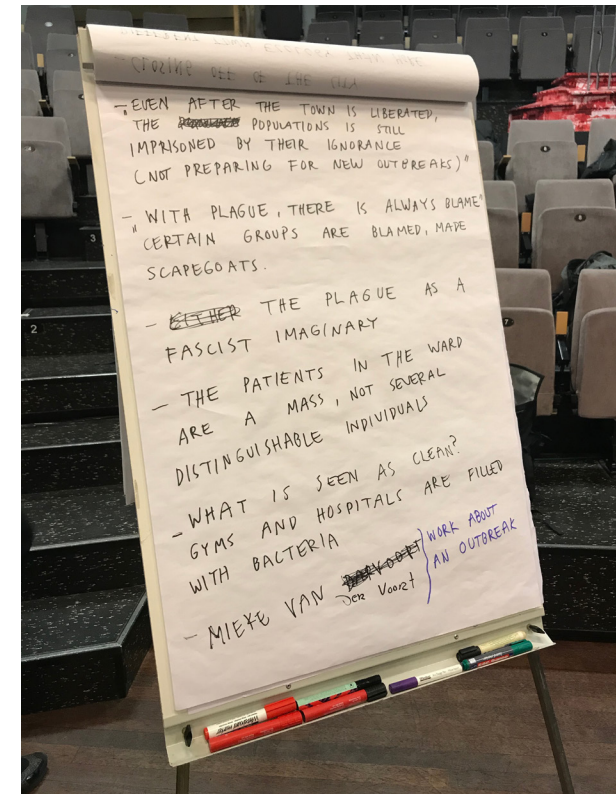 - "EVEN AFTER THE TOWN IS LIBERATED,
THE POPULATIONS IS STILL
IMPRISONED BY THEIR IGNORANCE
(NOT PREPARING FOR NEW OUTBREAKS)"
- "WITH PLAGUE, THERE IS ALWAYS BLAME"
CERTAIN GROUPS ARE BLAMED, MADE
SCAPEGOATS.
- EITHER THE PLAGUE AS A
FASCIST IMAGINARY
- THE PATIENTS IN THE WARD
ARE A MASS, NOT SEVERAL
DISTINGUISHABLE INDIVIDUALS
- WHAT IS SEEN AS CLEAN?
GYMS AND HOSPITALS ARE FILLED
WITH BACTERIA
- MIEKE VAN
Der Voort
WORK ABOUT
AN OUTBREAK
3
2
7